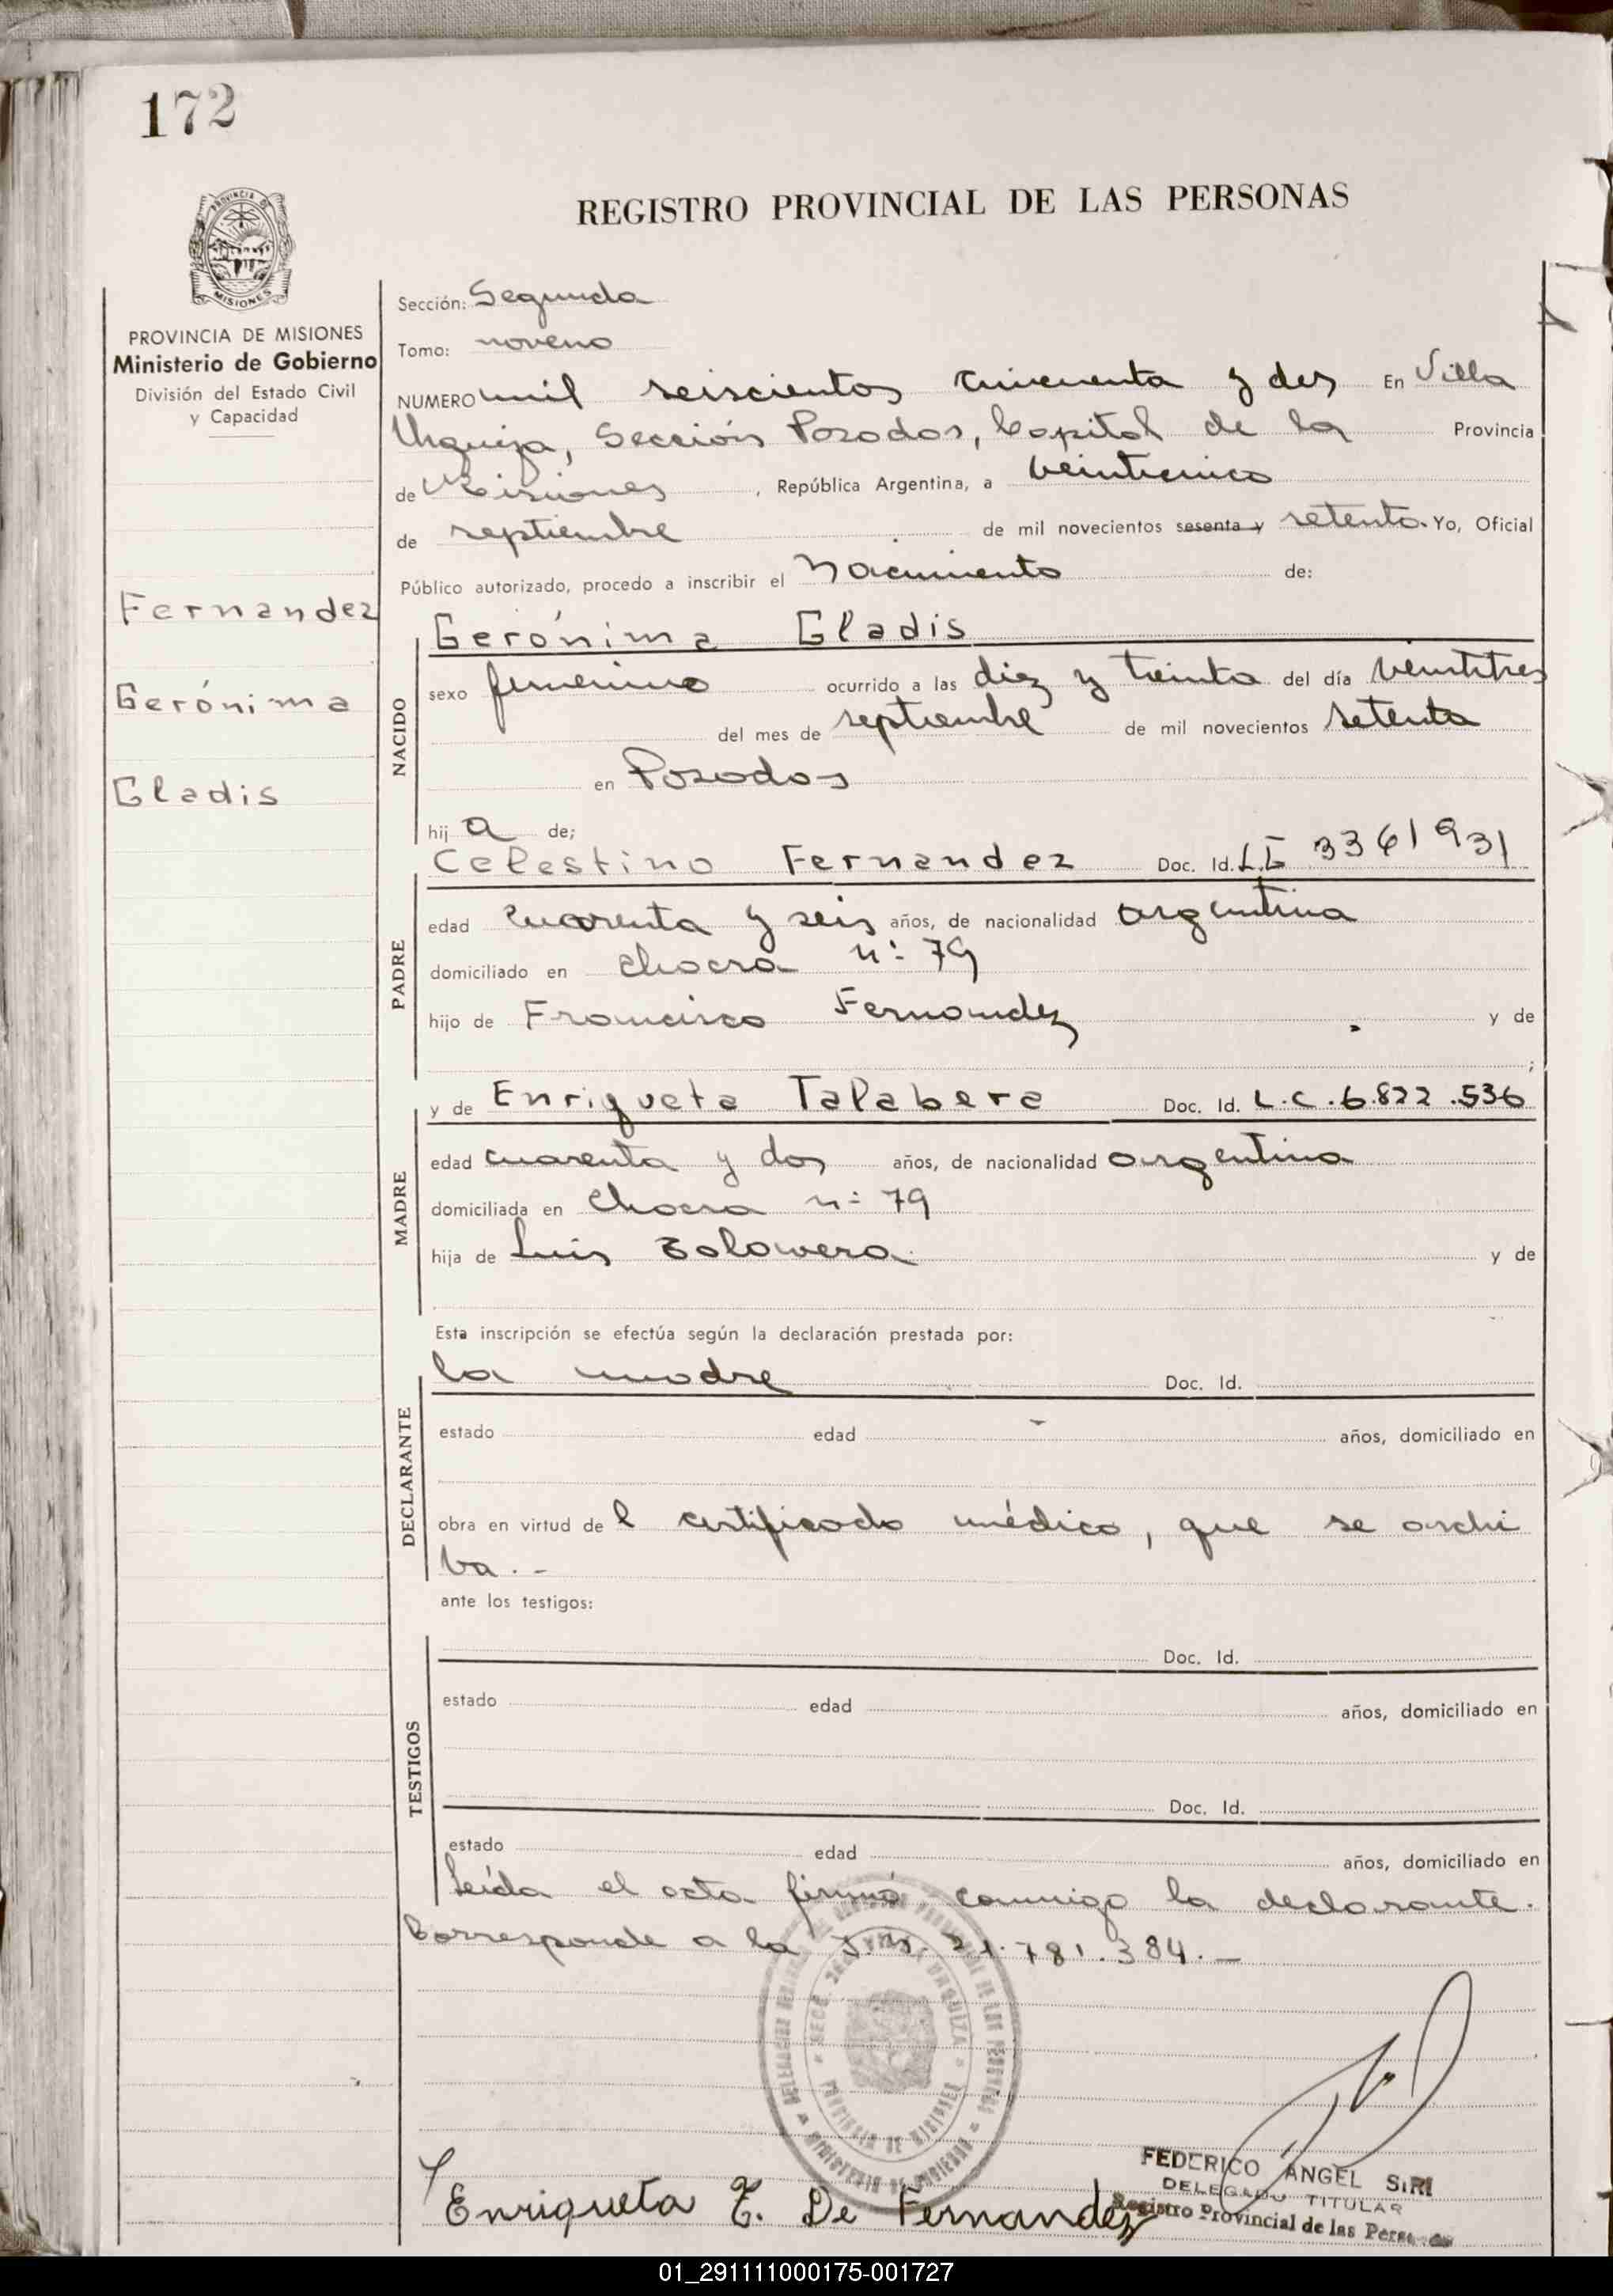 172
PROVINCIA DE
MISIONES
PROVINCIA DE MISIONES
Ministerio de Gobierno
División del Estado Civil
y Capacidad
Fernandez
Gerónima
Gladis
REGISTRO PROVINCIAL DE LAS PERSONAS
Sección: Segunda
Tomo: noveno
NUMERO mil seiscientos cincuenta y dos En Villa
Urquiza, Sección Posadas, Capital de la Provincia
de Misiones, República Argentina, a veinticinco
de septiembre de mil novecientos sesenta y setenta. Yo, Oficial
Público autorizado, procedo a inscribir el Nacimiento de:
NACIDO
Gerónima Gladis
sexo femenino ocurrido a las diez y treinta del día veintitres
del mes de septiembre de mil novecientos setenta
en Posadas
hij a de;
PADRE
Celestino Fernandez Doc. Id. L.E 3361931
edad cuarenta y seis años, de nacionalidad argentina
domiciliado en chacra n: 79
hijo de Francisco Fernandez y de
;
MADRE
y de Enriqueta Talabera Doc. Id. L.C.6.822.536
edad cuarenta y dos años, de nacionalidad argentina
domiciliada en chacra n: 79
hija de Luis Talavera y de
Esta inscripción se efectúa según la declaración prestada por:
DECLARANTE
la madre Doc. Id.
estado edad años, domiciliado en
obra en virtud de l certificado médico, que se archi
va.-
ante los testigos:
TESTIGOS
Doc. Id.
estado edad años, domiciliado en
Doc. Id.
estado edad años, domiciliado en
Leída el acta firmó conmigo la declarante.
Corresponde a la 21.781.384.—
PROVINCIA DE MISIONES
MINISTERIO DE GOBIERNO
Enriqueta T. De Fernandez
FEDERICO ANGEL SIRI
DELEGADO TITULAR
Registro Provincial de las Personas
01_291111000175-001727